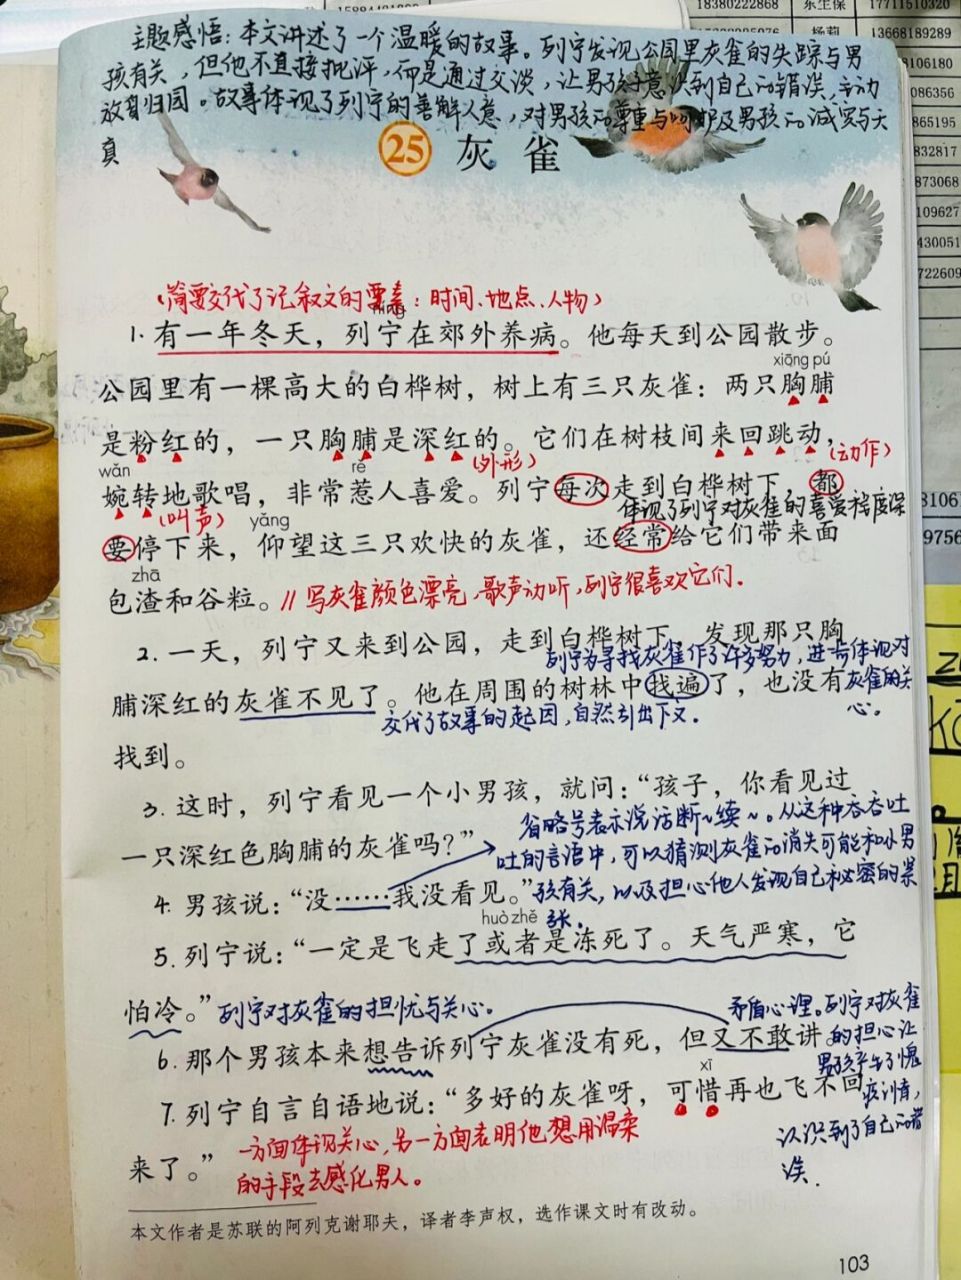 主题感悟：本文讲述了一个温暖的故事。列宁发现公园里灰雀的失踪与男
孩有关，但他不直接批评，而是通过交谈，让男孩子意识到自己的错误，主动
放鸟归园。故事体现了列宁的善解人意，对男孩的尊重与呵护及男孩的诚实与天
真
25 灰雀
（简要交代了记叙文的要素：时间、地点、人物）
níng
1. 有一年冬天，列宁在郊外养病。他每天到公园散步。
xiōng pú
公园里有一棵高大的白桦树，树上有三只灰雀：两只胸脯
是粉红的，一只胸脯是深红的。它们在树枝间来回跳动，
（外形）
（动作）
wǎn rě
婉转地歌唱，非常惹人喜爱。列宁每次走到白桦树下，都
（叫声）
体现了列宁对灰雀的喜爱程度深
yǎng
要停下来，仰望这三只欢快的灰雀，还经常给它们带来面
zhā
包渣和谷粒。//写灰雀颜色漂亮，歌声动听，列宁很喜欢它们.
2. 一天，列宁又来到公园，走到白桦树下，发现那只胸
列宁为寻找灰雀作了许多努力，进一步体现对
脯深红的灰雀不见了。他在周围的树林中找遍了，也没有
灰雀的关
心。
交代了故事的起因，自然引出下文.
找到。
3. 这时，列宁看见一个小男孩，就问：“孩子，你看见过
省略号表示说话断~续~。从这种吞吞吐
一只深红色胸脯的灰雀吗？”
吐的言语中，可以猜测灰雀的消失可能和小男
4. 男孩说：“没……我没看见。”
孩有关，以及担心他人发现自己秘密的紧
张.
huò zhě
5. 列宁说：“一定是飞走了或者是冻死了。天气严寒，它
怕冷。”
列宁对灰雀的担忧与关心.
矛盾心理。列宁对灰雀
的担心让
男孩产生了愧
疚之情，
认识到了自己的错
误.
6. 那个男孩本来想告诉列宁灰雀没有死，但又不敢讲。
xī
7. 列宁自言自语地说：“多好的灰雀呀，可惜再也飞不回
来了。”
一方面体现关心，另一方面表明他想用温柔
的手段去感化男人。
本文作者是苏联的阿列克谢耶夫，译者李声权，选作课文时有改动。
103
18380222868 东生保 17711510320
杨莉 13668189289
8106180
086356
865195
832817
873068
109627
430051
722609